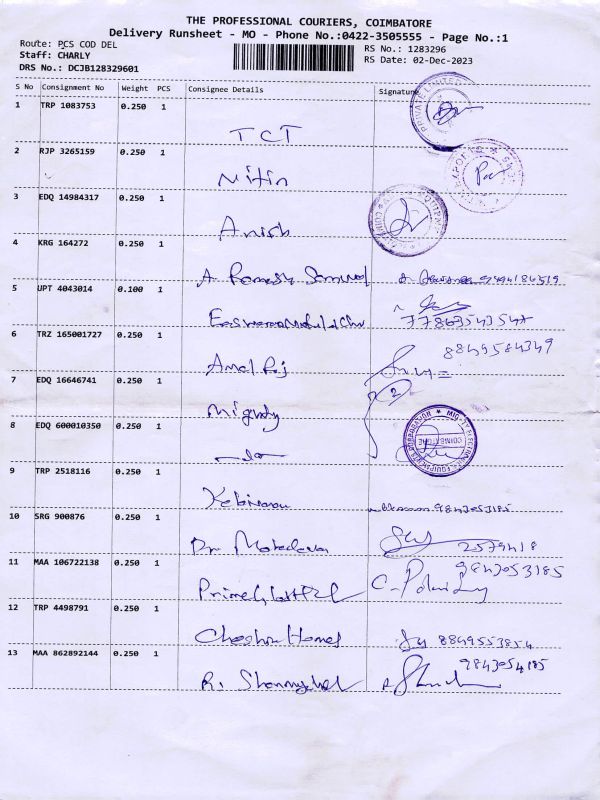 THE PROFESSIONAL COURIERS, COIMBATORE
Delivery Runsheet - MO - Phone No.:0422-3505555 - Page No.:1
Route: PCS COD DEL
RS No.: 1283296
Staff: CHARLY
RS Date: 02-Dec-2023
DRS No.: DCJB128329601
S No Consignment No Weight PCS Consignee Details Signature
1 TRP 1083753 0.250 1
TCT
2 RJP 3265159 0.250 1
Nitin
3 EDQ 14984317 0.250 1
Anish
4 KRG 164272 0.250 1
A Ramesh
5 UPT 4043014 0.100 1
6 TRZ 165001727 0.250 1
Amal Raj
8849584349
7 EDQ 16646741 0.250 1
Mighty
2
8 EDQ 600010350 0.250 1
COIMBATORE
9 TRP 2518116 0.250 1
9843053185
10 SRG 900876 0.250 1
Dr Mahadevan
2579418
11 MAA 106722138 0.250 1
9843053185
12 TRP 4498791 0.250 1
Homes
8849553854
13 MAA 862892144 0.250 1
9843054185
R.